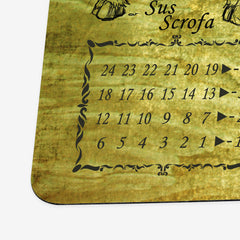 Sus
Scrofa
24 23 22 21 20 19
18 17 16 15 14 13
12 11 10 9 8 7
6 5 4 3 2 1